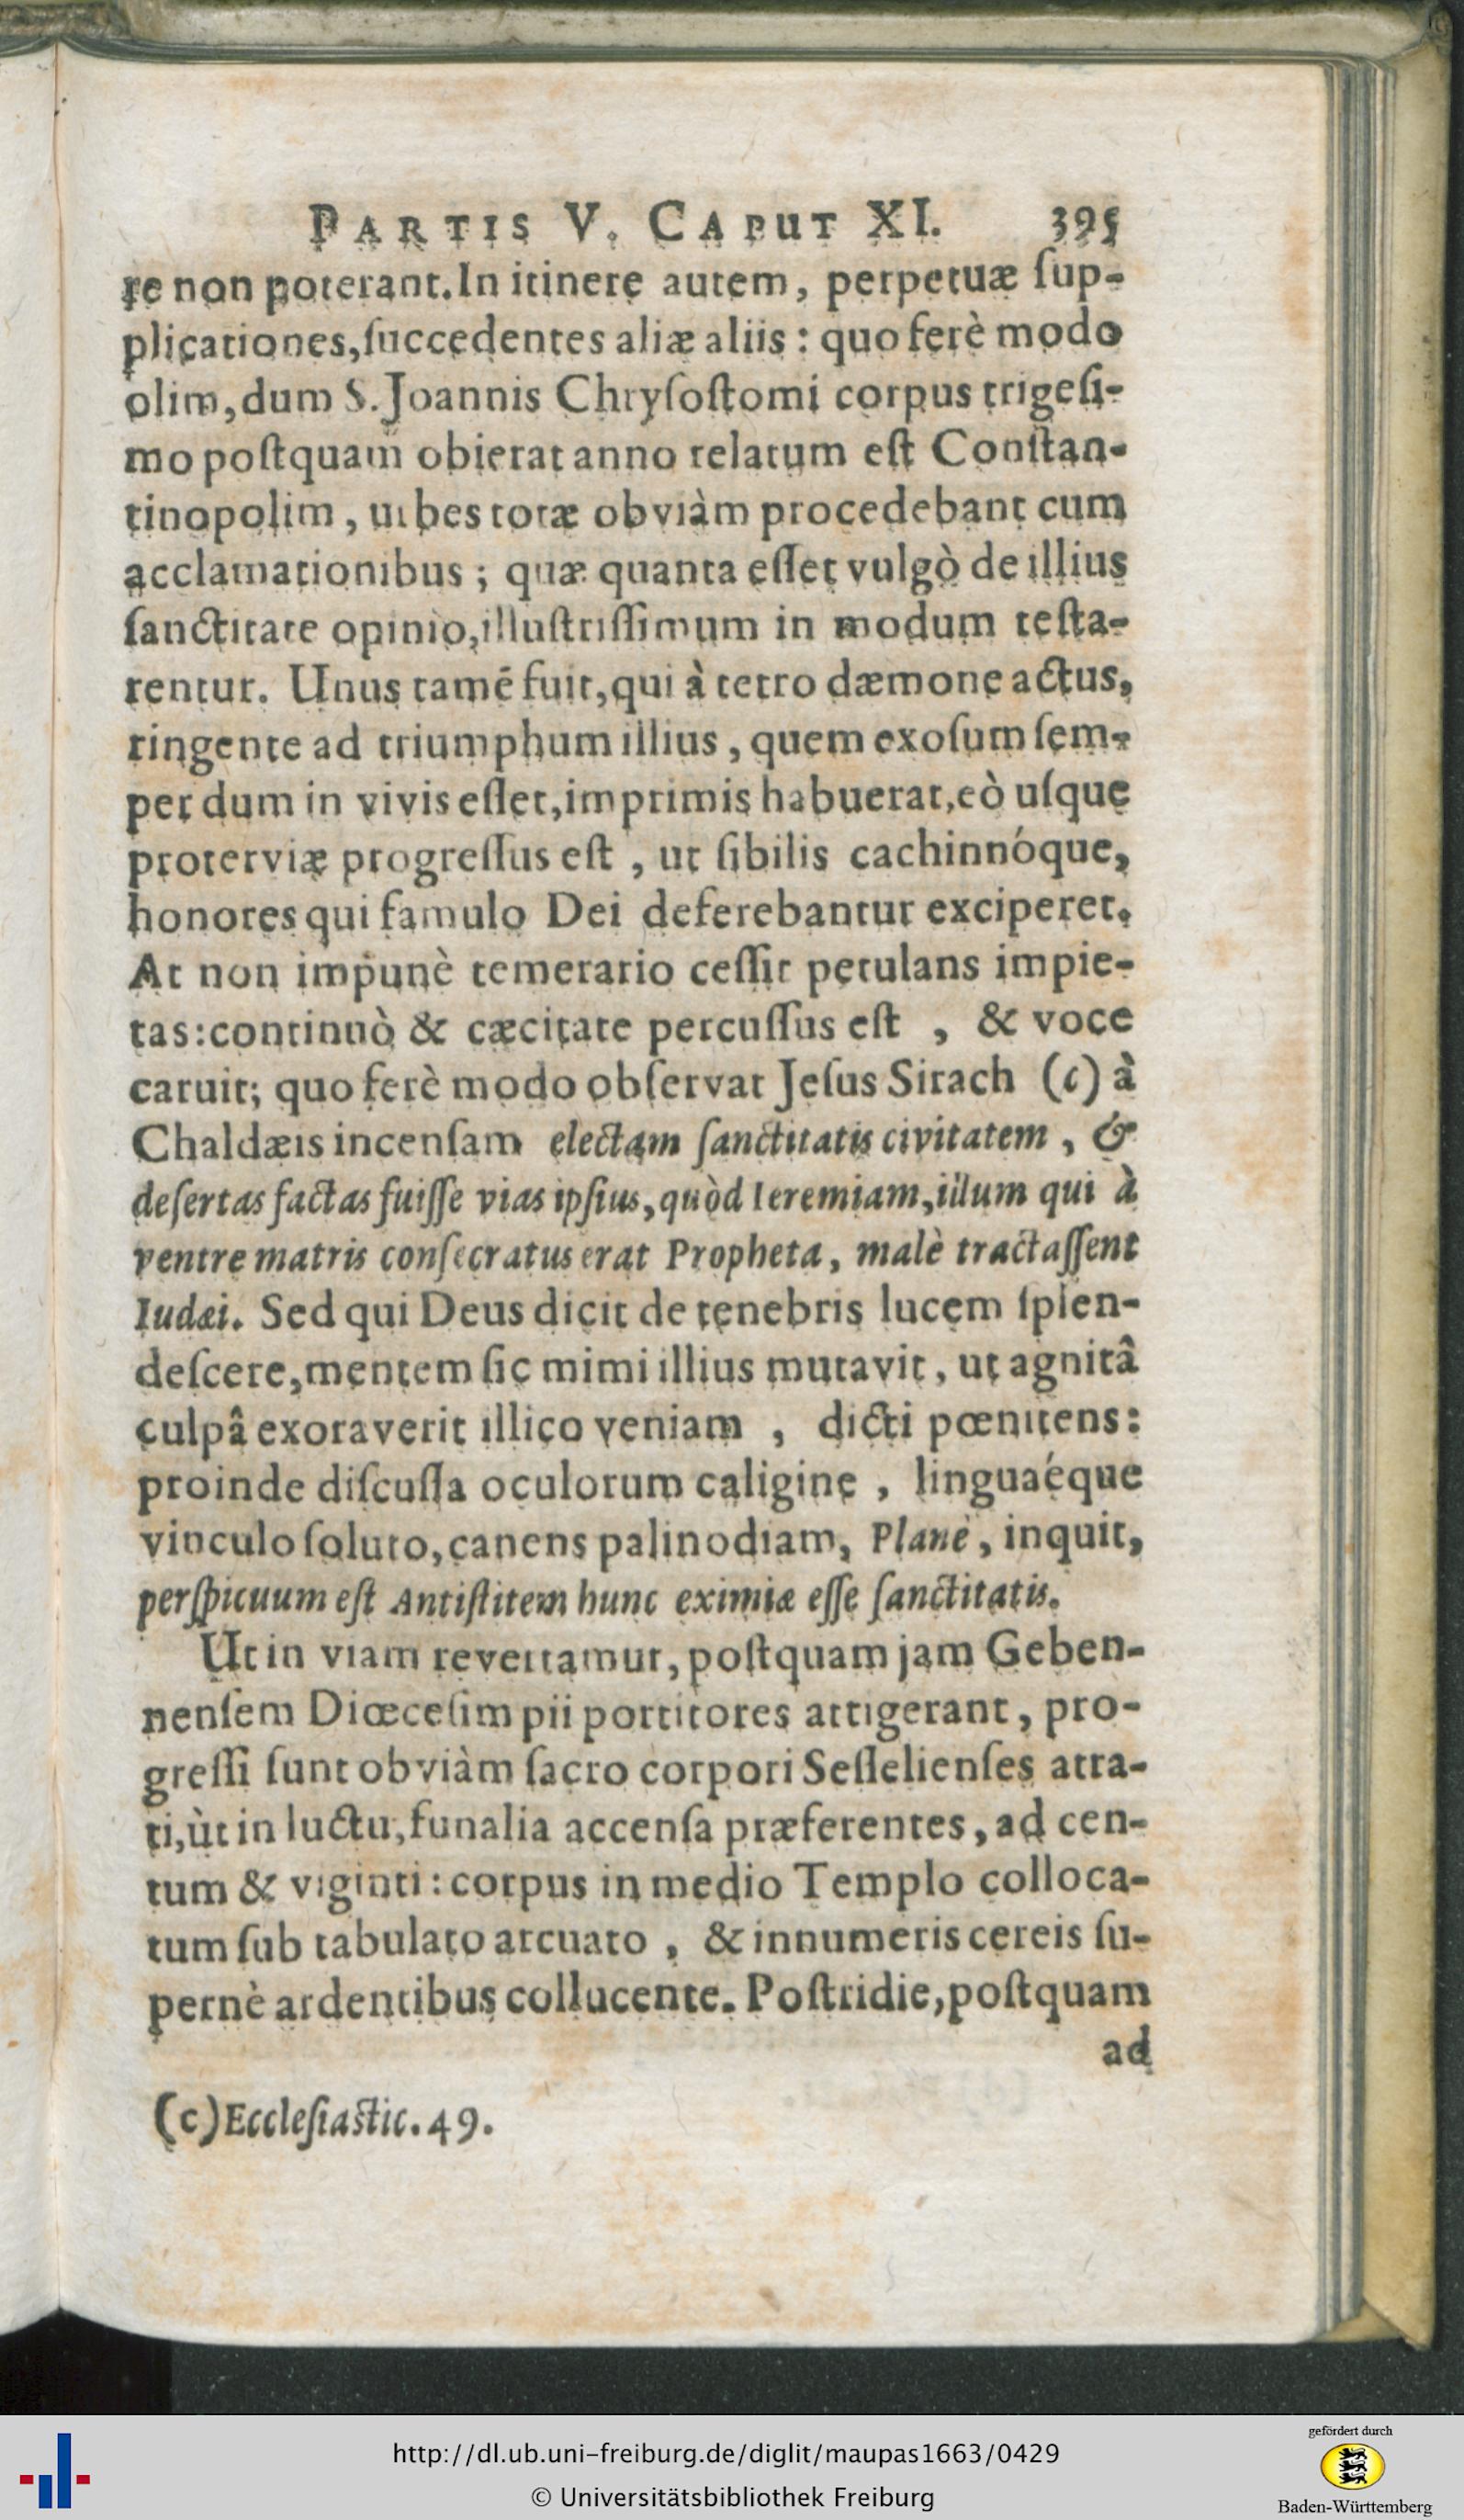 PARTIS V. CAPUT XI. 395
re non poterant. In itinere autem, perpetuæ ſup-
plicationes, ſuccedentes aliæ aliis : quo ferè modo
olim, dum S. Joannis Chryſoſtomi corpus trigeſi-
mo poſtquam obierat anno relatum eſt Conſtan-
tinopolim, urbes totæ obviàm procedebant cum
acclamationibus ; quæ quanta eſſet vulgò de illius
ſanctitate opinio, illuſtriſſimum in modum teſta-
rentur. Unus tamē fuit, qui à tetro dæmone actus,
ringente ad triumphum illius, quem exoſum ſem-
per dum in vivis eſſet, imprimis habuerat, eò uſque
proterviæ progreſſus eſt, ut ſibilis cachinnóque,
honores qui famulo Dei deferebantur exciperet.
At non impunè temerario ceſſit petulans impie-
tas: continuò & cæcitate percuſſus eſt, & voce
caruit; quo ferè modo obſervat Jeſus Sirach (c) à
Chaldæis incenſam electam ſanctitatis civitatem, &
deſertas factas fuiſſe vias ipſius, quòd Ieremiam, illum qui à
ventre matris conſecratus erat Propheta, malè tractaſſent
Iudæi. Sed qui Deus dicit de tenebris lucem ſplen-
deſcere, mentem ſic mimi illius mutavit, ut agnitâ
culpâ exoraverit illico veniam, dicti pœnitens:
proinde diſcuſſa oculorum caligine, linguaéque
vinculo ſoluto, canens palinodiam, Planè, inquit,
perſpicuum eſt Antiſtitem hunc eximiæ eſſe ſanctitatis.
Ut in viam revertamur, poſtquam jam Geben-
nenſem Diœceſim pii portitores attigerant, pro-
greſſi ſunt obviàm ſacro corpori Seſſelienſes atra-
ti, ùt in luctu, funalia accenſa præferentes, ad cen-
tum & viginti : corpus in medio Templo colloca-
tum ſub tabulato arcuato, & innumeris cereis ſu-
pernè ardentibus collucente. Poſtridie, poſtquam
ad
(c) Eccleſiaſtic. 49.
http://dl.ub.uni-freiburg.de/diglit/maupas1663/0429
© Universitätsbibliothek Freiburg
gefördert durch
Baden-Württemberg